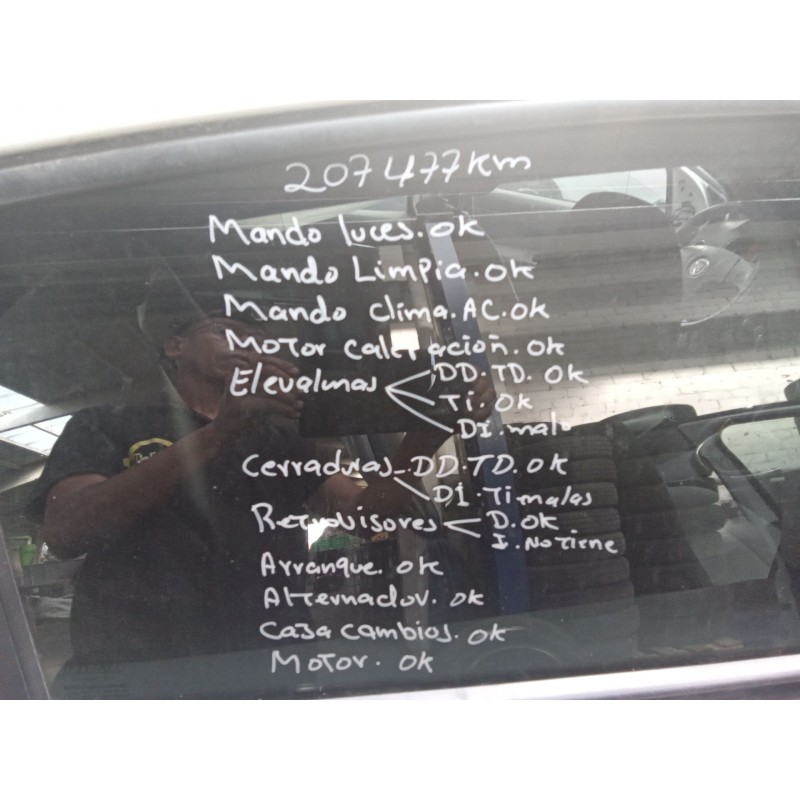 207477km
Mando luces. OK
Mando Limpia. OK
Mando clima. AC. OK
Motor calefacion. OK
Elevalunas DD. TD. OK
Ti. OK
DI. malo
Cerraduras DD. TD. OK
DI. Ti malas
Retrovisores D. OK
I. No Tiene
Arranque. OK
Alternador. OK
Caja cambios. OK
Motor. OK